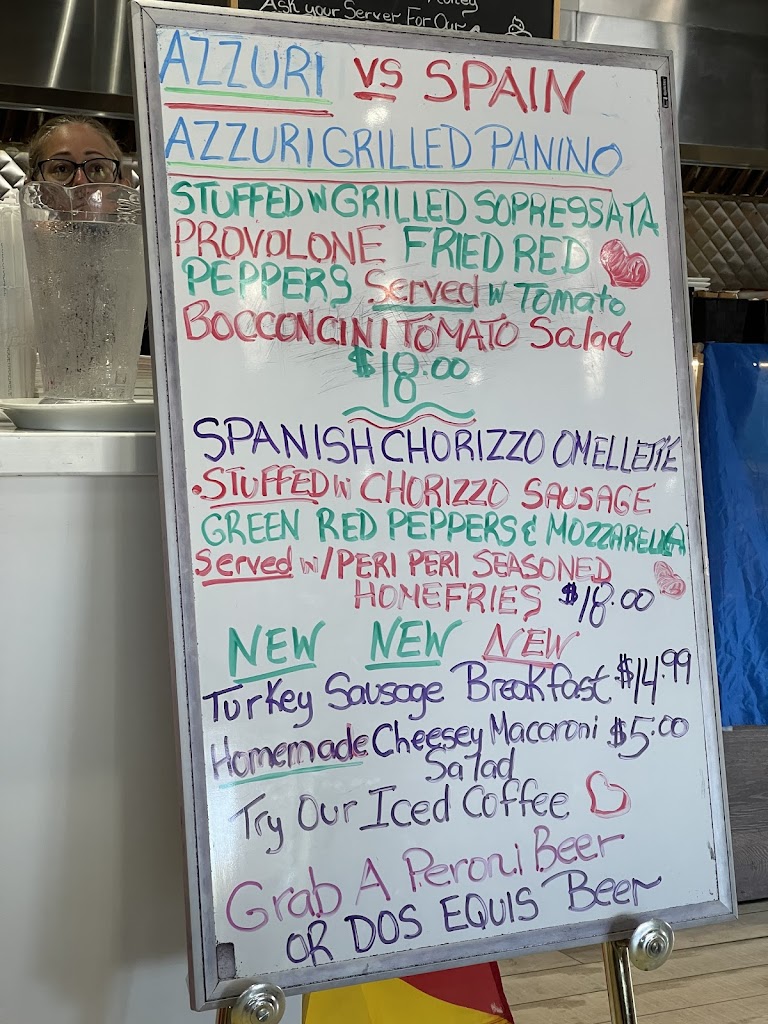 Ask your Server For Our
AZZURI VS SPAIN
AZZURI GRILLED PANINO
STUFFED W GRILLED SOPRESSATA
PROVOLONE FRIED RED
PEPPERS Served W Tomato
BOCCONCINI TOMATO Salad
$18.00
SPANISH CHORIZZO OMELLETTE
• STUFFED W CHORIZZO SAUSAGE
GREEN RED PEPPERS & MOZZARELLA
Served W/ PERI PERI SEASONED
HOMEFRIES $18.00
NEW NEW NEW
Turkey Sausage Breakfast $14.99
Homemade Cheesey Macaroni $5.00
Salad
Try Our Iced Coffee
Grab A Peroni Beer
OR DOS EQUIS Beer